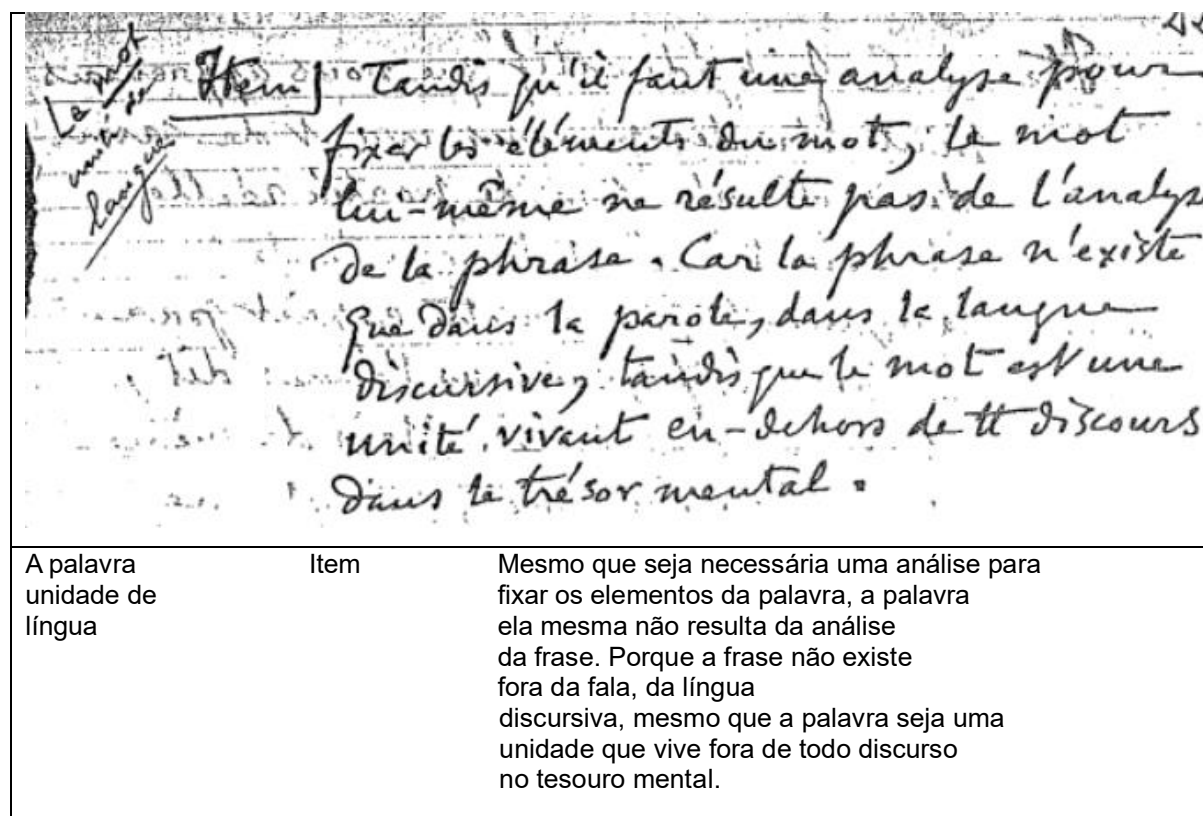 Le mot
unité de
langue
Item] Tandis qu'il faut une analyse pour
fixer les éléments du mot, le mot
lui-même ne résulte pas de l'analyse
de la phrase. Car la phrase n'existe
que dans la parole, dans la langue
discursive, tandis que le mot est une
unité vivant en-dehors de tt discours
dans le trésor mental.
A palavra
unidade de
língua
Item
Mesmo que seja necessária uma análise para
fixar os elementos da palavra, a palavra
ela mesma não resulta da análise
da frase. Porque a frase não existe
fora da fala, da língua
discursiva, mesmo que a palavra seja uma
unidade que vive fora de todo discurso
no tesouro mental.